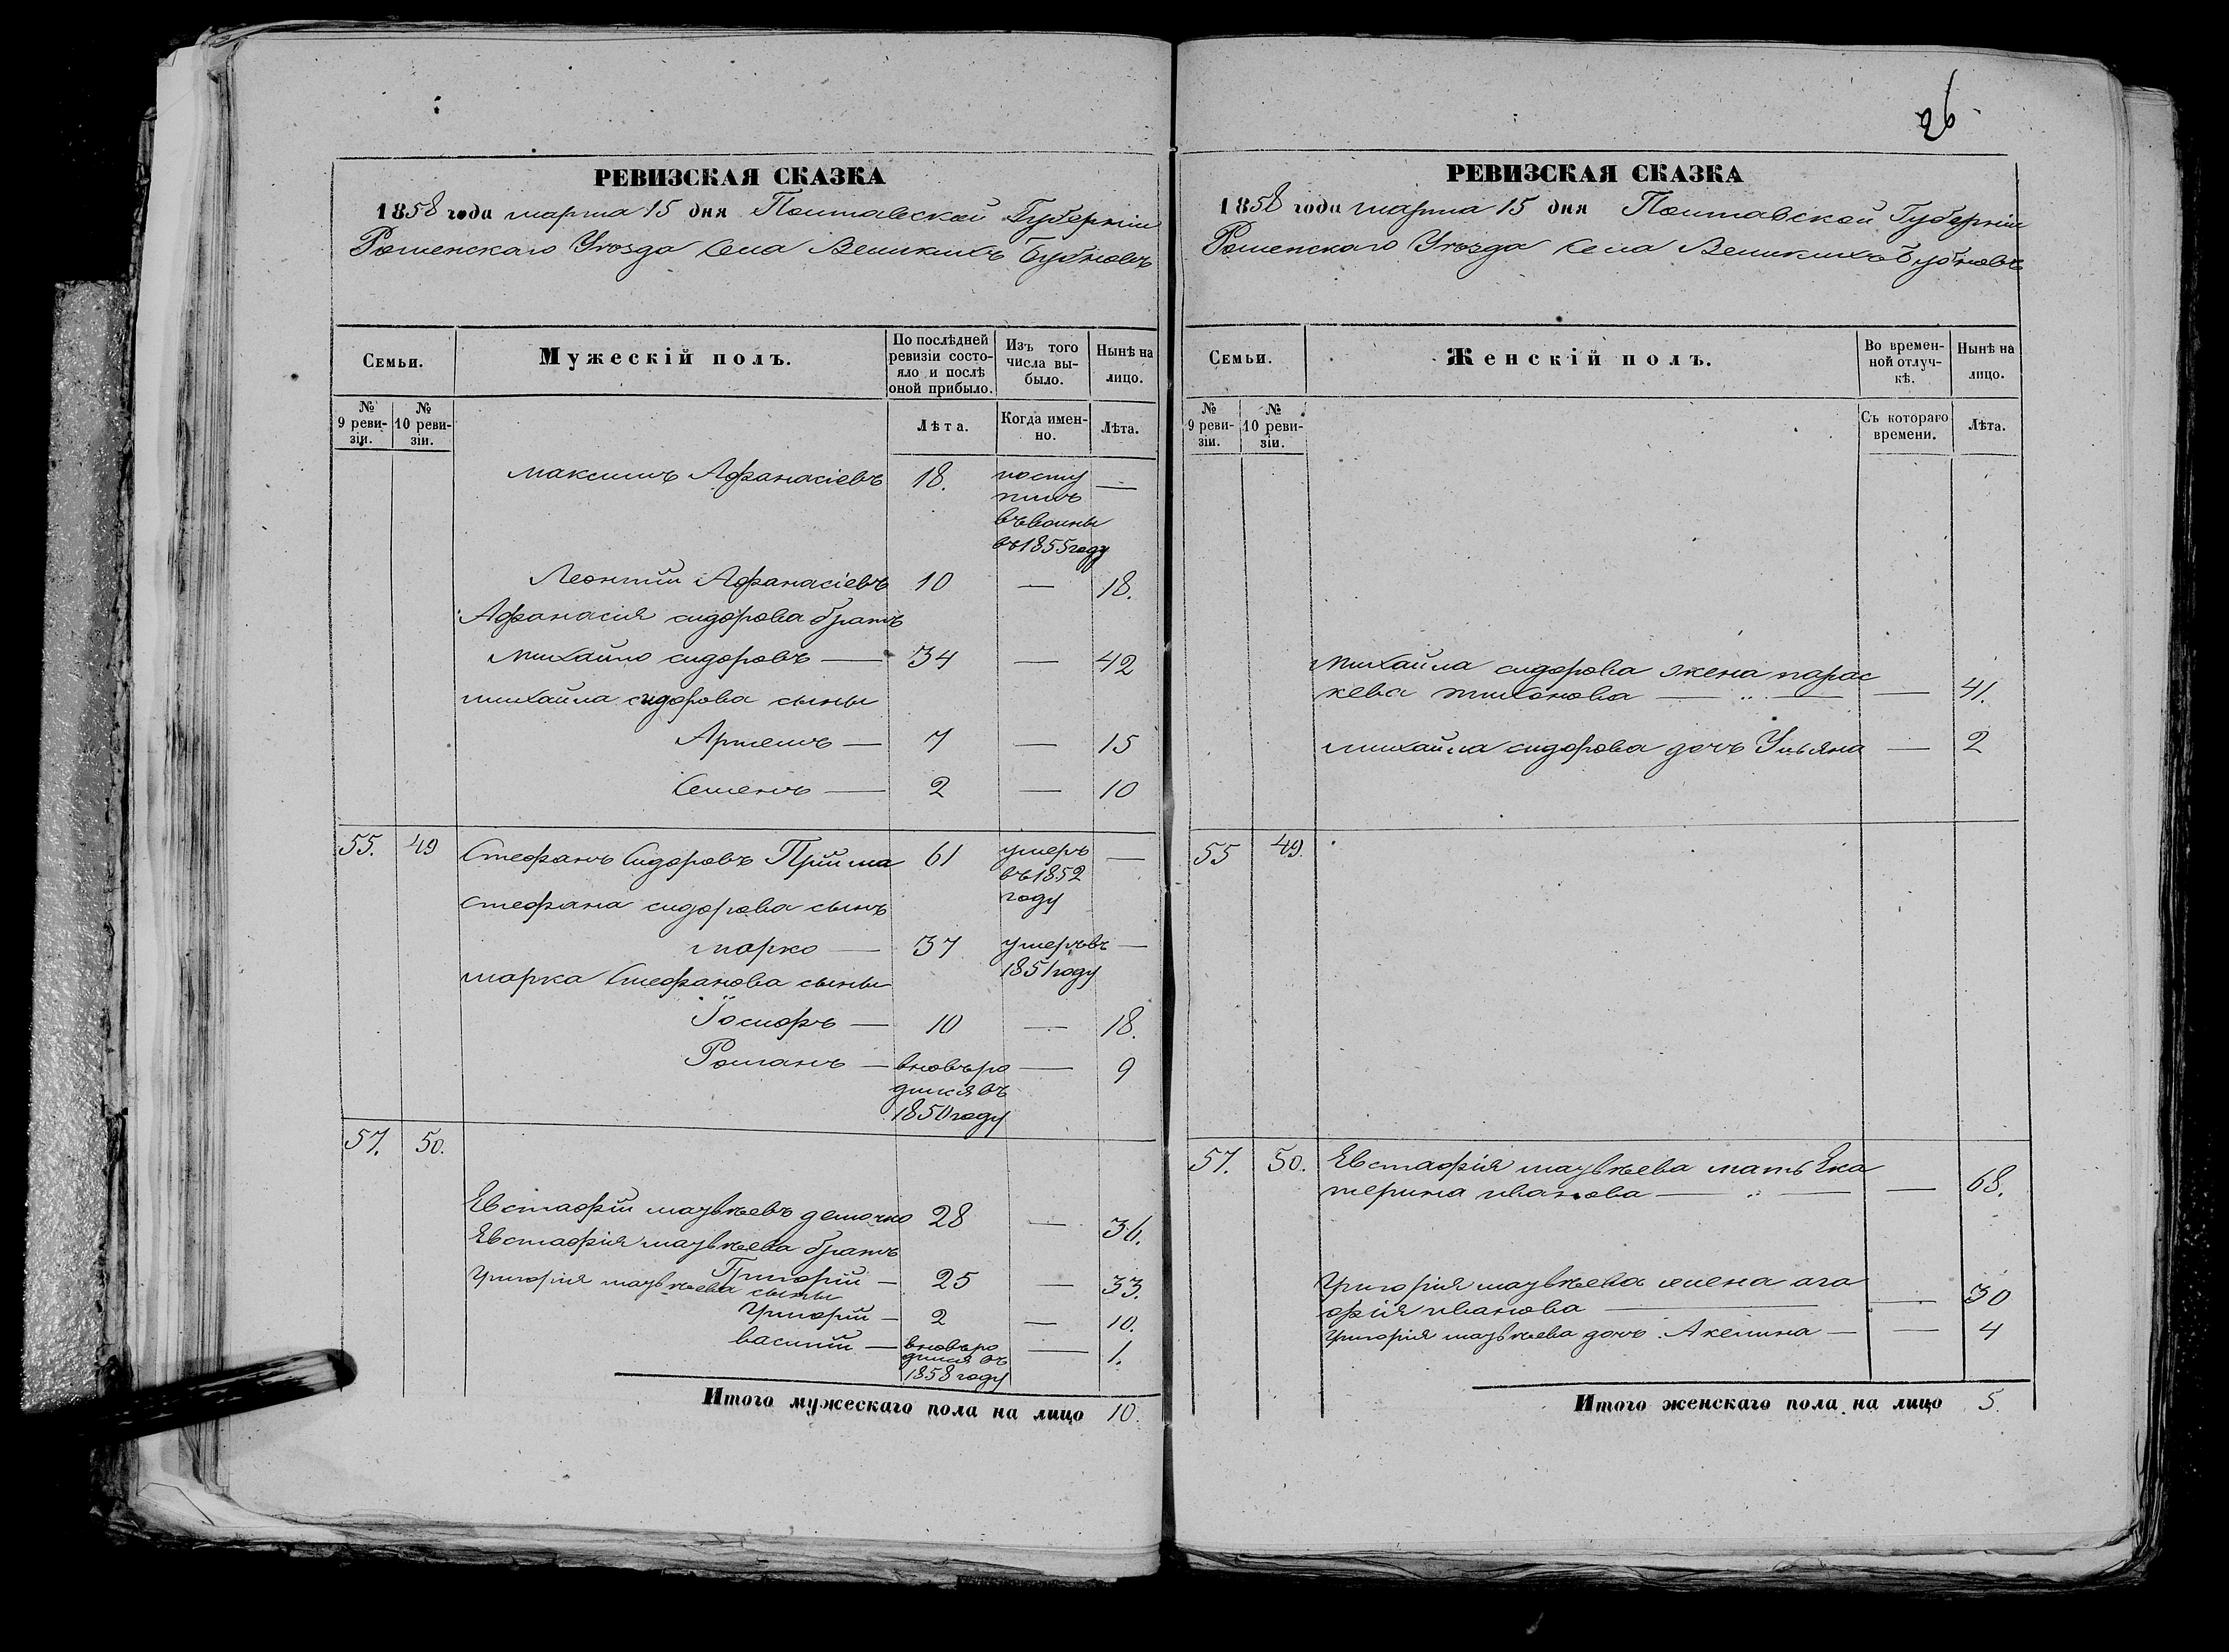 26
РЕВИЗСКАЯ СКАЗКА
1858 года марта 15 дня Полтавской Губерніи
Роменскаго Уезда Села Великихъ Бубновъ
Семьи.
Мужескій полъ.
По послѣдней ревизіи состо-
яло и послѣ
оной прибыло.
Изъ того
числа вы-
было.
Нынѣ на
лицо.
№
9 реви-
зіи.
№
10 реви-
зіи.
Лѣта.
Когда имен-
но.
Лѣта.
Максимъ Афанасіевъ 18. посту —
пилъ
въ воины
въ 1855 году
Леонтій Афанасіевъ 10 — 18.
Афанасія сидорова братъ
Михайло сидоровъ — 34 — 42
михайла сидорова сыны
Артемъ — 7 — 15
Семенъ — 2 — 10
55. 49 Стефанъ Сидоровъ Прийма 61 умеръ —
въ 1852
году
стефана сидорова сынъ
марко — 37 умеръ въ —
1851 году
марка Стефанова сыны
Іосифъ — 10 — 18.
Романъ — вновь ро — 9
дился въ
1850 году
57. 50.
Евстафій матвѣевъ 28 — 36.
Евстафія матвѣева братъ
Григорій — 25 — 33.
Григорія матвѣева сыны
Григорій — 2 — 10.
василій — вновь ро — 1.
дился въ
1858 году
Итого мужескаго пола на лицо 10.
РЕВИЗСКАЯ СКАЗКА
1858 года марта 15 дня Полтавской Губерніи
Роменскаго Уезда Села Великихъ Бубновъ
Семьи.
Женскій полъ.
Во времен-
ной отлуч-
кѣ.
Нынѣ на
лицо.
№
9 реви-
зіи.
№
10 реви-
зіи.
Съ котораго
времени.
Лѣта.
Михайла сидорова жена парас
кева тихонова — — 41.
михайла сидорова дочь Ульяна — 2
55 49.
57. 50. Евстафія матвѣева мать Ека
терина иванова — — 68.
Григорія матвѣева жена ага
фія иванова — — 30
Григорія матвѣева дочь Акелина — — 4
Итого женскаго пола на лицо 5.